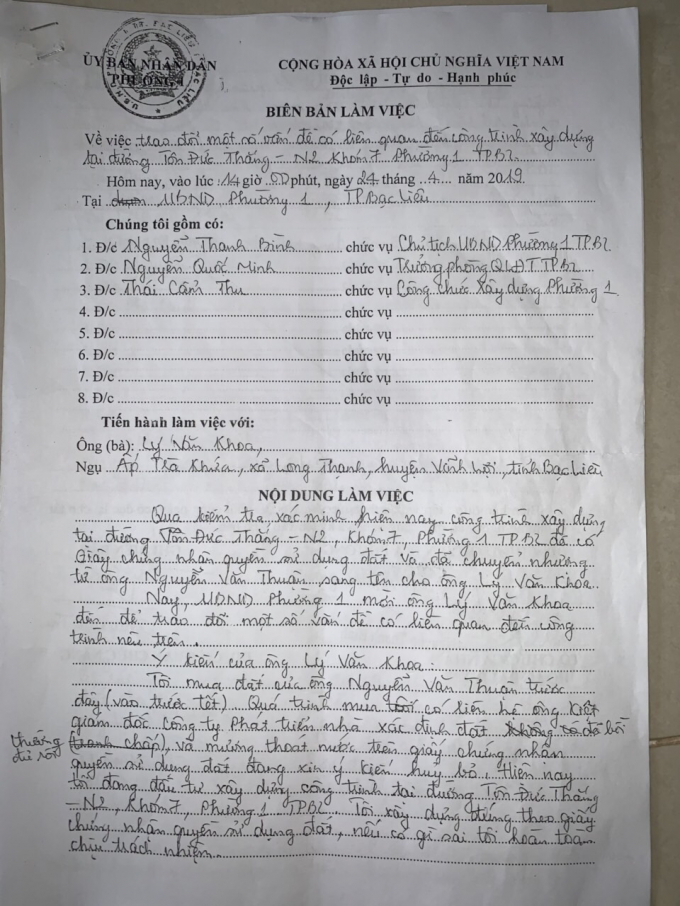 ỦY BAN NHÂN DÂN
PHƯỜNG 1
CỘNG HÒA XÃ HỘI CHỦ NGHĨA VIỆT NAM
Độc lập - Tự do - Hạnh phúc
BIÊN BẢN LÀM VIỆC
Về việc trao đổi một số vấn đề có liên quan đến công trình xây dựng
tại đường Tôn Đức Thắng - N2, Khóm 7 Phường 1 TPBL
Hôm nay, vào lúc 14 giờ 00 phút, ngày 24 tháng 4 năm 2019
Tại UBND Phường 1, TP Bạc Liêu
Chúng tôi gồm có:
1. Đ/c Nguyễn Thanh Bình chức vụ Chủ tịch UBND Phường 1 TPBL
2. Đ/c Nguyễn Quốc Minh chức vụ Trưởng phòng QLĐT TPBL
3. Đ/c Thái Cẩm Thu chức vụ Công chức Xây dựng Phường 1
4. Đ/c chức vụ
5. Đ/c chức vụ
6. Đ/c chức vụ
7. Đ/c chức vụ
8. Đ/c chức vụ
Tiến hành làm việc với:
Ông (bà): Lý Văn Khoa,
Ngụ Ấp Trà Khứa, xã Long Thạnh, huyện Vĩnh Lợi, tỉnh Bạc Liêu
NỘI DUNG LÀM VIỆC
Qua kiểm tra, xác minh hiện nay công trình xây dựng
tại đường Tôn Đức Thắng - N2, Khóm 7, Phường 1 TPBL đã có
Giấy chứng nhận quyền sử dụng đất và đã chuyển nhượng
từ ông Nguyễn Văn Thuận sang tên cho ông Lý Văn Khoa
Nay, UBND Phường 1 mời ông Lý Văn Khoa
đến để trao đổi một số vấn đề có liên quan đến công
trình nêu trên.
Ý kiến của ông Lý Văn Khoa:
Tôi mua đất của ông Nguyễn Văn Thuận trước
đây (vào trước tết). Quá trình mua tôi có liên hệ ông Kiệt
giám đốc công ty Phát triển nhà xác định đất không có đã bồi
thường
đủ rồi
tranh chấp), và mương thoát nước trên giấy chứng nhận
quyền sử dụng đất đang xin ý kiến hủy bỏ. Hiện nay
tôi đang đầu tư xây dựng công trình tại đường Tôn Đức Thắng
- N2, Khóm 7, Phường 1 TPBL. Tôi xây dựng đúng theo giấy
chứng nhận quyền sử dụng đất, nếu có gì sai tôi hoàn toàn
chịu trách nhiệm.